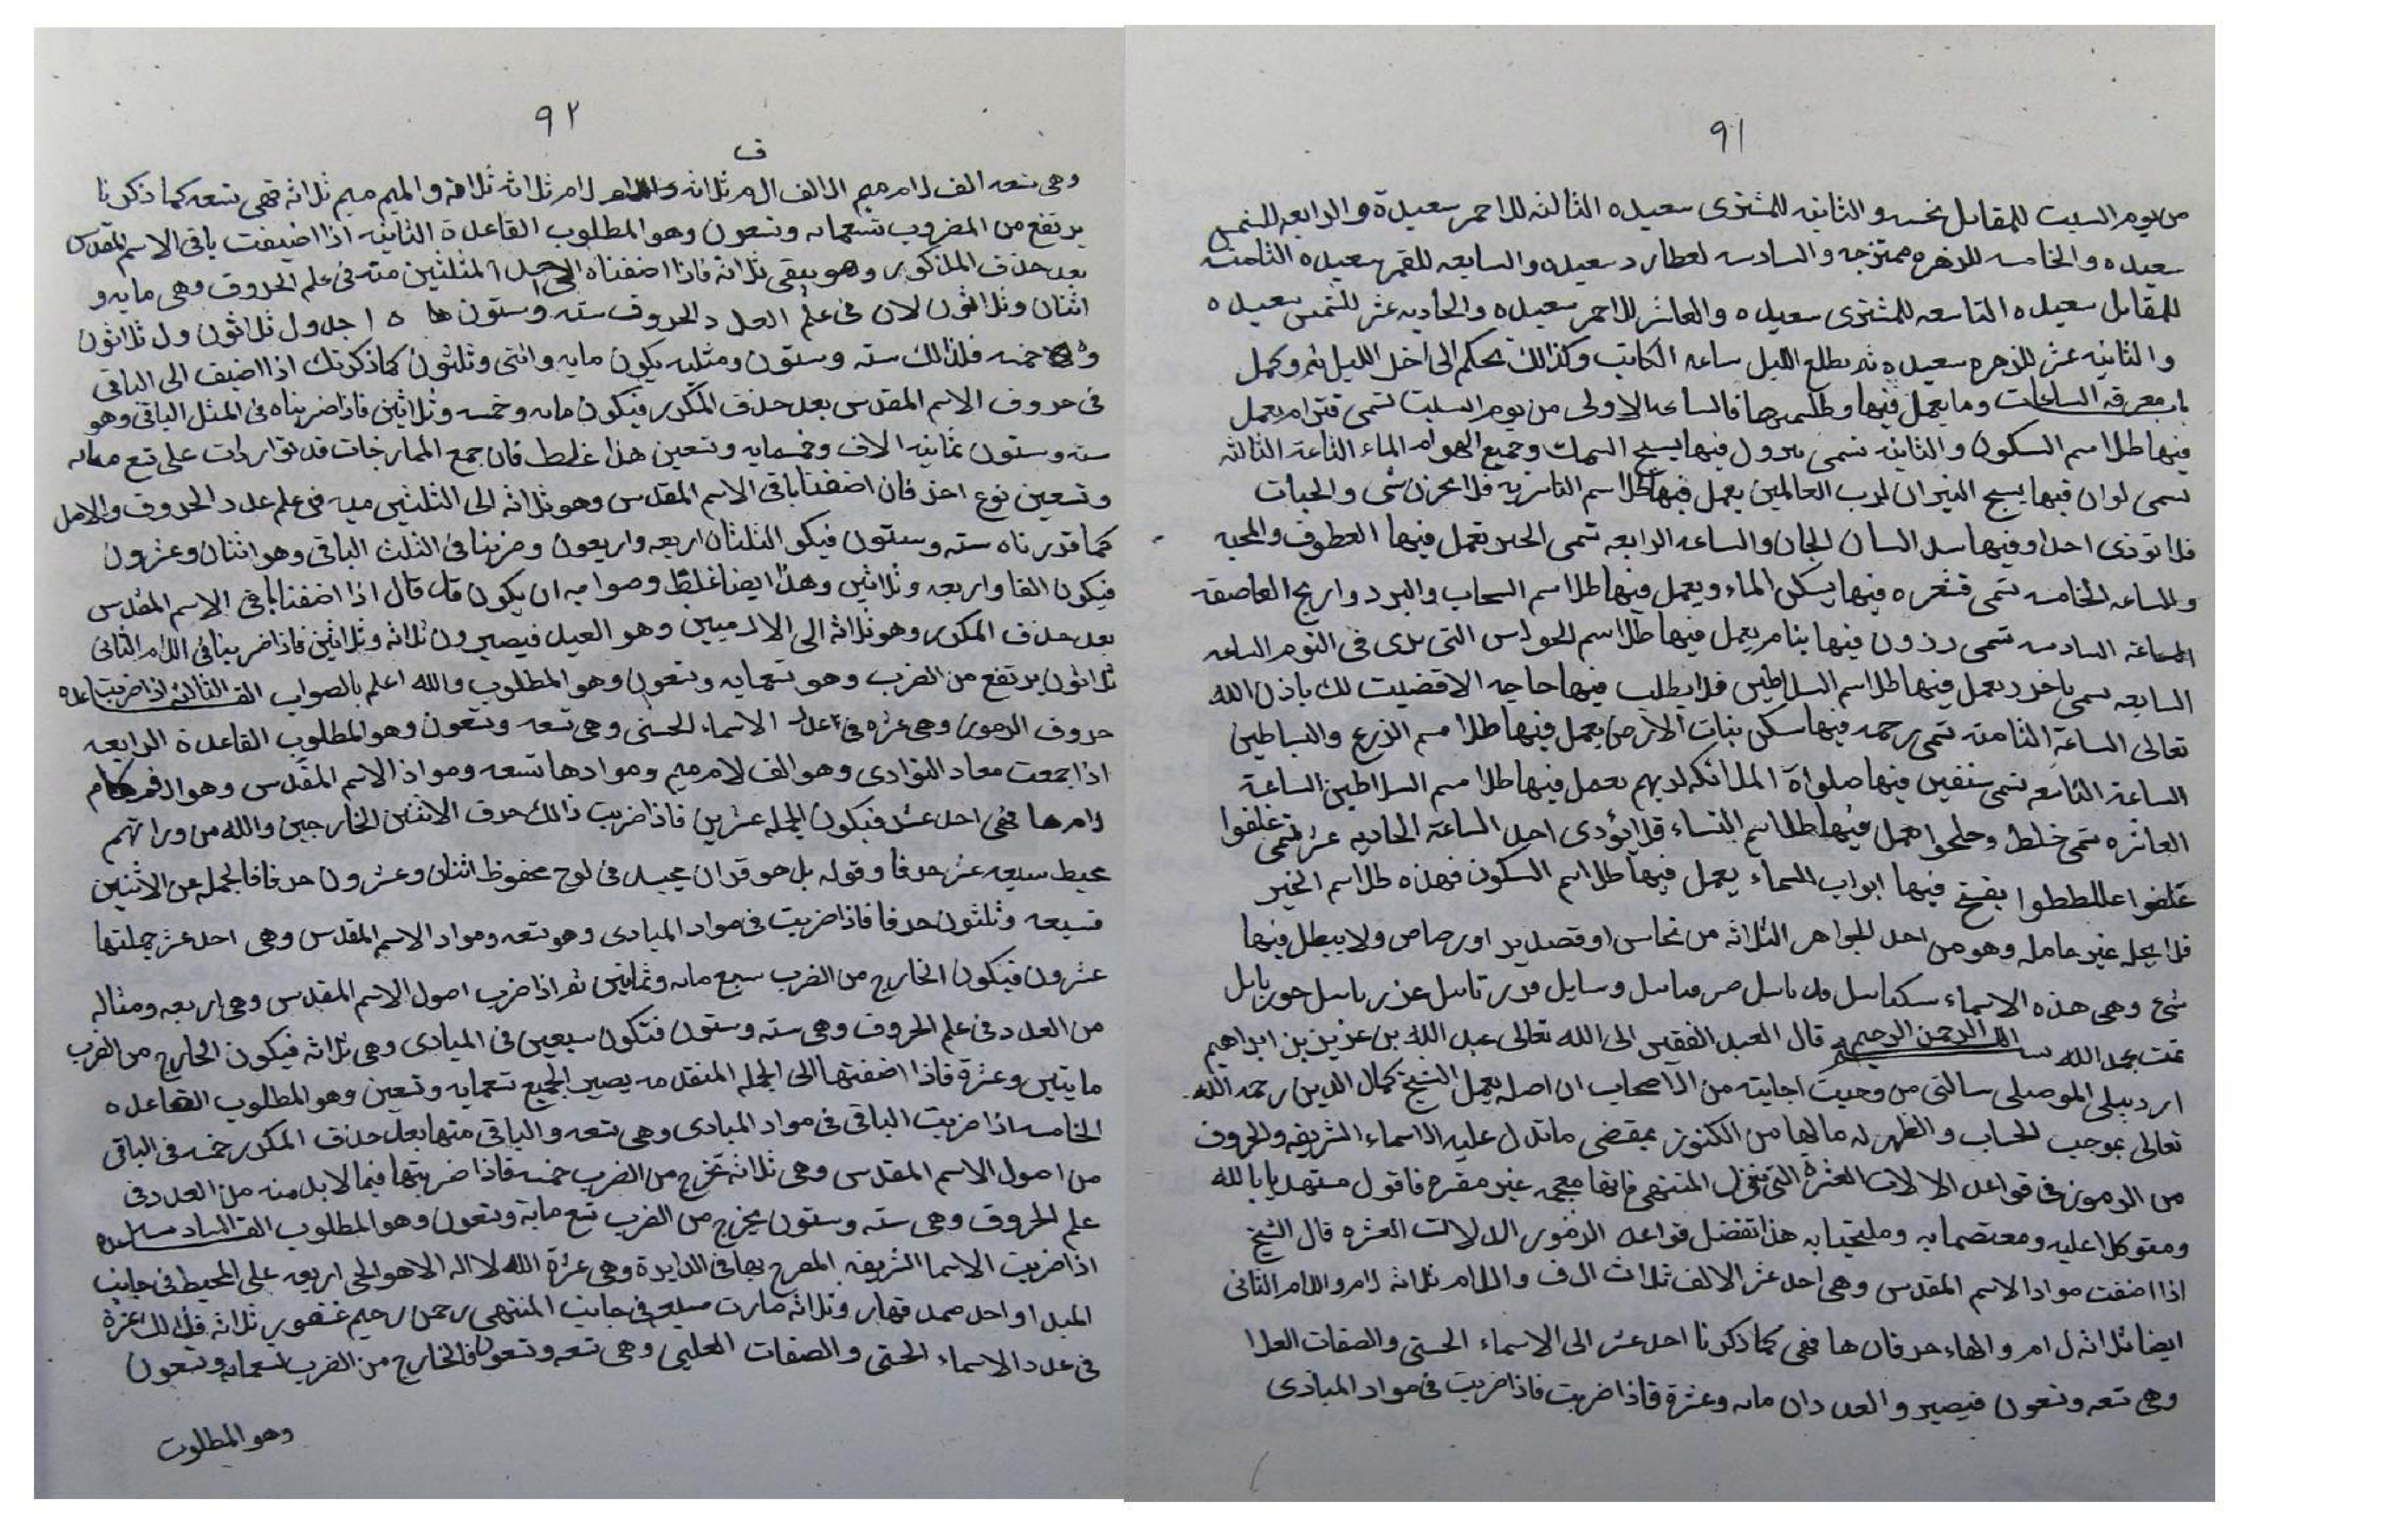 ٩١
من يوم السبت للمقابل نحسه والثانيه للمشترى سعيده الثالثه للاحمر سعيدة والرابعه للشمس
سعيده والخامسه للزهره ممتزجه والسادسه لعطارد سعيده والسابعه للقمر سعيده الثامنه
للمقابل سعيده التاسعه للمشترى سعيده والعاشر للاحمر سعيده والحاديه عشر للشمس سعيده
والثانيه عشر للزهره سعيده ثم يطلع الليل ساعه الكاتب وكذالك تحكم الى اخل الليل وكمل
باب معرفه الساعات وما يعمل فيها وطلسمها فالساعه الاولى من يوم السبت تسمى يعمل
فيها طلاسم السكون والثانيه تسمى فيها يسبح السمك وجميع الهوام الماء الثاعة الثالثه
تسمى لوان فيها يسبح النيران لرب العالمين يعمل فيها طلاسم النانريه فلا شى والحيات
فلا توذى احدا وفيها السان الجان والساعه الرابعه تسمى تعمل فيها العطوف والمحبه
والساعه الخامسه تسمى فيها يسكن الماء ويعمل فيها طلاسم السحاب والبرد واريح العاصفه
الساعة السادسه تسمى رذون فيها ينام يعمل فيها طلاسم الحواس التى فى النوم الساعه
السابعه تسمى يعمل فيها طلاسم السلاطين فلا يطلب فيها حاجه الا قضيت لك باذن الله
تعالى الساعة الثامنه تسمى فيها سكن بنات الارض يعمل فيها طلاسم الزرع والبساطين
الساعة التاسعه تسمى سنفين فيها صلواة الملائكه لربهم يعمل فيها طلاسم السلاطين الساعة
العاشره تسمى خلط يعمل فيها طلاسم النساء فلا يؤدى احد الساعة الحاديه عشر تسمى غلفوا
يفتح فيها ابواب السماء يعمل فيها طلاسم السكون فهذه طلاسم الخير
فلا يحله غير عامله وهو من احد الجواهر الثلاثه من نحاس او قصدير او رصاص ولا يبطل فيها
شئ وهى هذه الاسماء
تمت بحمد الله بسم الله الرحمن الرحيم قال العبد الفقير الى الله تعالى عبد الله بن عزيز بن ابراهيم
اردبيلى الموصلى سالتى من وجبت اجابته من الاصحاب ان اصله يعمل الشيخ كمال الدين رحمه الله
تعالى بموجب الحساب والظهر له مالها من الكنوز بمقضى ماتدل عليه الاسماء الشريفه والحروف
من الرموز فى قواعد الالات العشرة التى المنتهى فانها معجمه غير مقرح فاقول مستهديا بالله
ومتوكلا عليه ومعتصما به وملتجئا به هذا تفضل قواعد الرموز الدلالات العشره قال الشيخ
اذا اضفت مواد الاسم المقدس وهى احد عشر الالف ثلاث ال ف واللام ثلاثه لام واللام الثانى
ايضا ثلاثه ل ام والهاء حرفان ها فهى كما ذكرنا احد عشر الى الاسماء الحسنى والصفات العلا
وهى تسعه وتسعون فيصير والعددان مايه وعشرة فاذا ضربت فاذا ضربت فى مواد المبادى
٩٢
ف
وهى تسعه الف لام ميم الالف ال م ثلاثه واللام لام ثلاثه ثلاثه والميم ميم ثلاثه فهى تسعه كما ذكرنا
يرتفع من المضروب تسعمايه وتسعون وهو المطلوب القاعدة الثانيه اذا اضيفت باقى الاسم المقدس
بعد حذف المذكور وهو يبقى ثلاثه فاذا اضفناه الى المثلثين منه فى علم الحروف وهى مايه و
اثنان وثلاثون لان فى علم العدد الحروف سته وستون ها ٥ ا جدول ثلاثون ول ثلاثون
وه خمسه فلذالك سته وستون ومثليه يكون مايه واثنى وثلثون كما ذكرتك اذا اضيف الى الباقى
فى حروف الاسم المقدس بعد حذف المكرر فيكون مايه وخمسه وثلاثين فاذا ضربناه فى المثل الباقى وهو
سته وستون ثمانيه الاف وخمسمايه وتسعين هذا غلط فان جمع المخارجات قد تواردات على تسع مايه
وتسعين نوع اخذ فان اضفنا باقى الاسم المقدس وهو ثلاثه الى الثلثين ميه فى علم عدد الحروف والامل
كما قدرناه سته وستون فيكو الثلثان اربعه واربعون وضربنا فى الثلث الباقى وهو اثنان وعشرون
فيكون الفا واربعه وثلاثين وهذا ايضا غلط وصوابه ان يكون قد قال اذا اضفنا باقى الاسم المقدس
بعد حذف المكرر وهو ثلاثه الى الا لدميين وهو العبد فيصيرون ثلاثه وثلاثين فاذا ضربنا فى اللام الثانى
ثلاثون يرتفع من الضرب وهو تسعمايه وتسعون وهو المطلوب والله اعلم بالصواب القاعده الثالثه اذا ضربت
حروف الرموز وهى عشره فى اعداد الاسماء الحسنى وهى تسعه وتسعون وهو المطلوب القاعدة الرابعه
اذا جمعت معاد النوادى وهو الف لام ميم وموادها تسعه ومواد الاسم المقدس وهو
لام ها فهى احد عشر فيكون الجمله عشرين فاذا ضربت ذالك حرف الاثنين الخارجين والله من ورائهم
محيط سبعه عشر حرفا وقوله بل هو قران مجيد فى لوح محفوظ اثنان وعشرون حرفا فالجمله من الاثنين
فسبعه وثلثون حرفا فاذا ضربت فى مواد المبادى وهو تسعه ومواد الاسم المقدس وهى احد عشر جملتها
عشرون فيكون الخارج من الضرب سبع مايه وثمانين ثم اذا ضرب اصول الاسم المقدس وهى اربعه ومثاله
من العدد فى علم الحروف وهى سته وستون فتكون سبعين فى المبادى وهى ثلاثه فيكون الخارج من الضرب
مايتين وعشرة فاذا اضفتها الى الجمله المتقدمه يصير الجميع تسعمايه وتسعين وهو المطلوب القاعده
الخامسه اذا ضربت الباقى فى مواد المبادى وهى تسعه والباقى منها بعد حذف المكرر خمسه فى الباقى
من اصول الاسم المقدس وهى ثلاثه تخرج من الضرب خمسه فاذا ضربتها فيما لابد منه من العدد فى
علم الحروف وهى سته وستون يخرج من الضرب تسع ماية وتسعون وهو المطلوب القاعده السادسه
اذا ضربت الاسما الشريفه المصرح بها فى الدايرة وهى عشرة الله لا اله الا هو الحى اربعه على المحيط فى جانب
المبدا واحد صمد قهار وثلاثه صارت سبعه فى جانب المنتهى رحمن رحيم غفور ثلاثه فذالك عشرة
فى عدد الاسماء الحسنى والصفات العليى وهى تسعه وتسعون فالخارج من الضرب تسعمايه وتسعون
وهو المطلوب